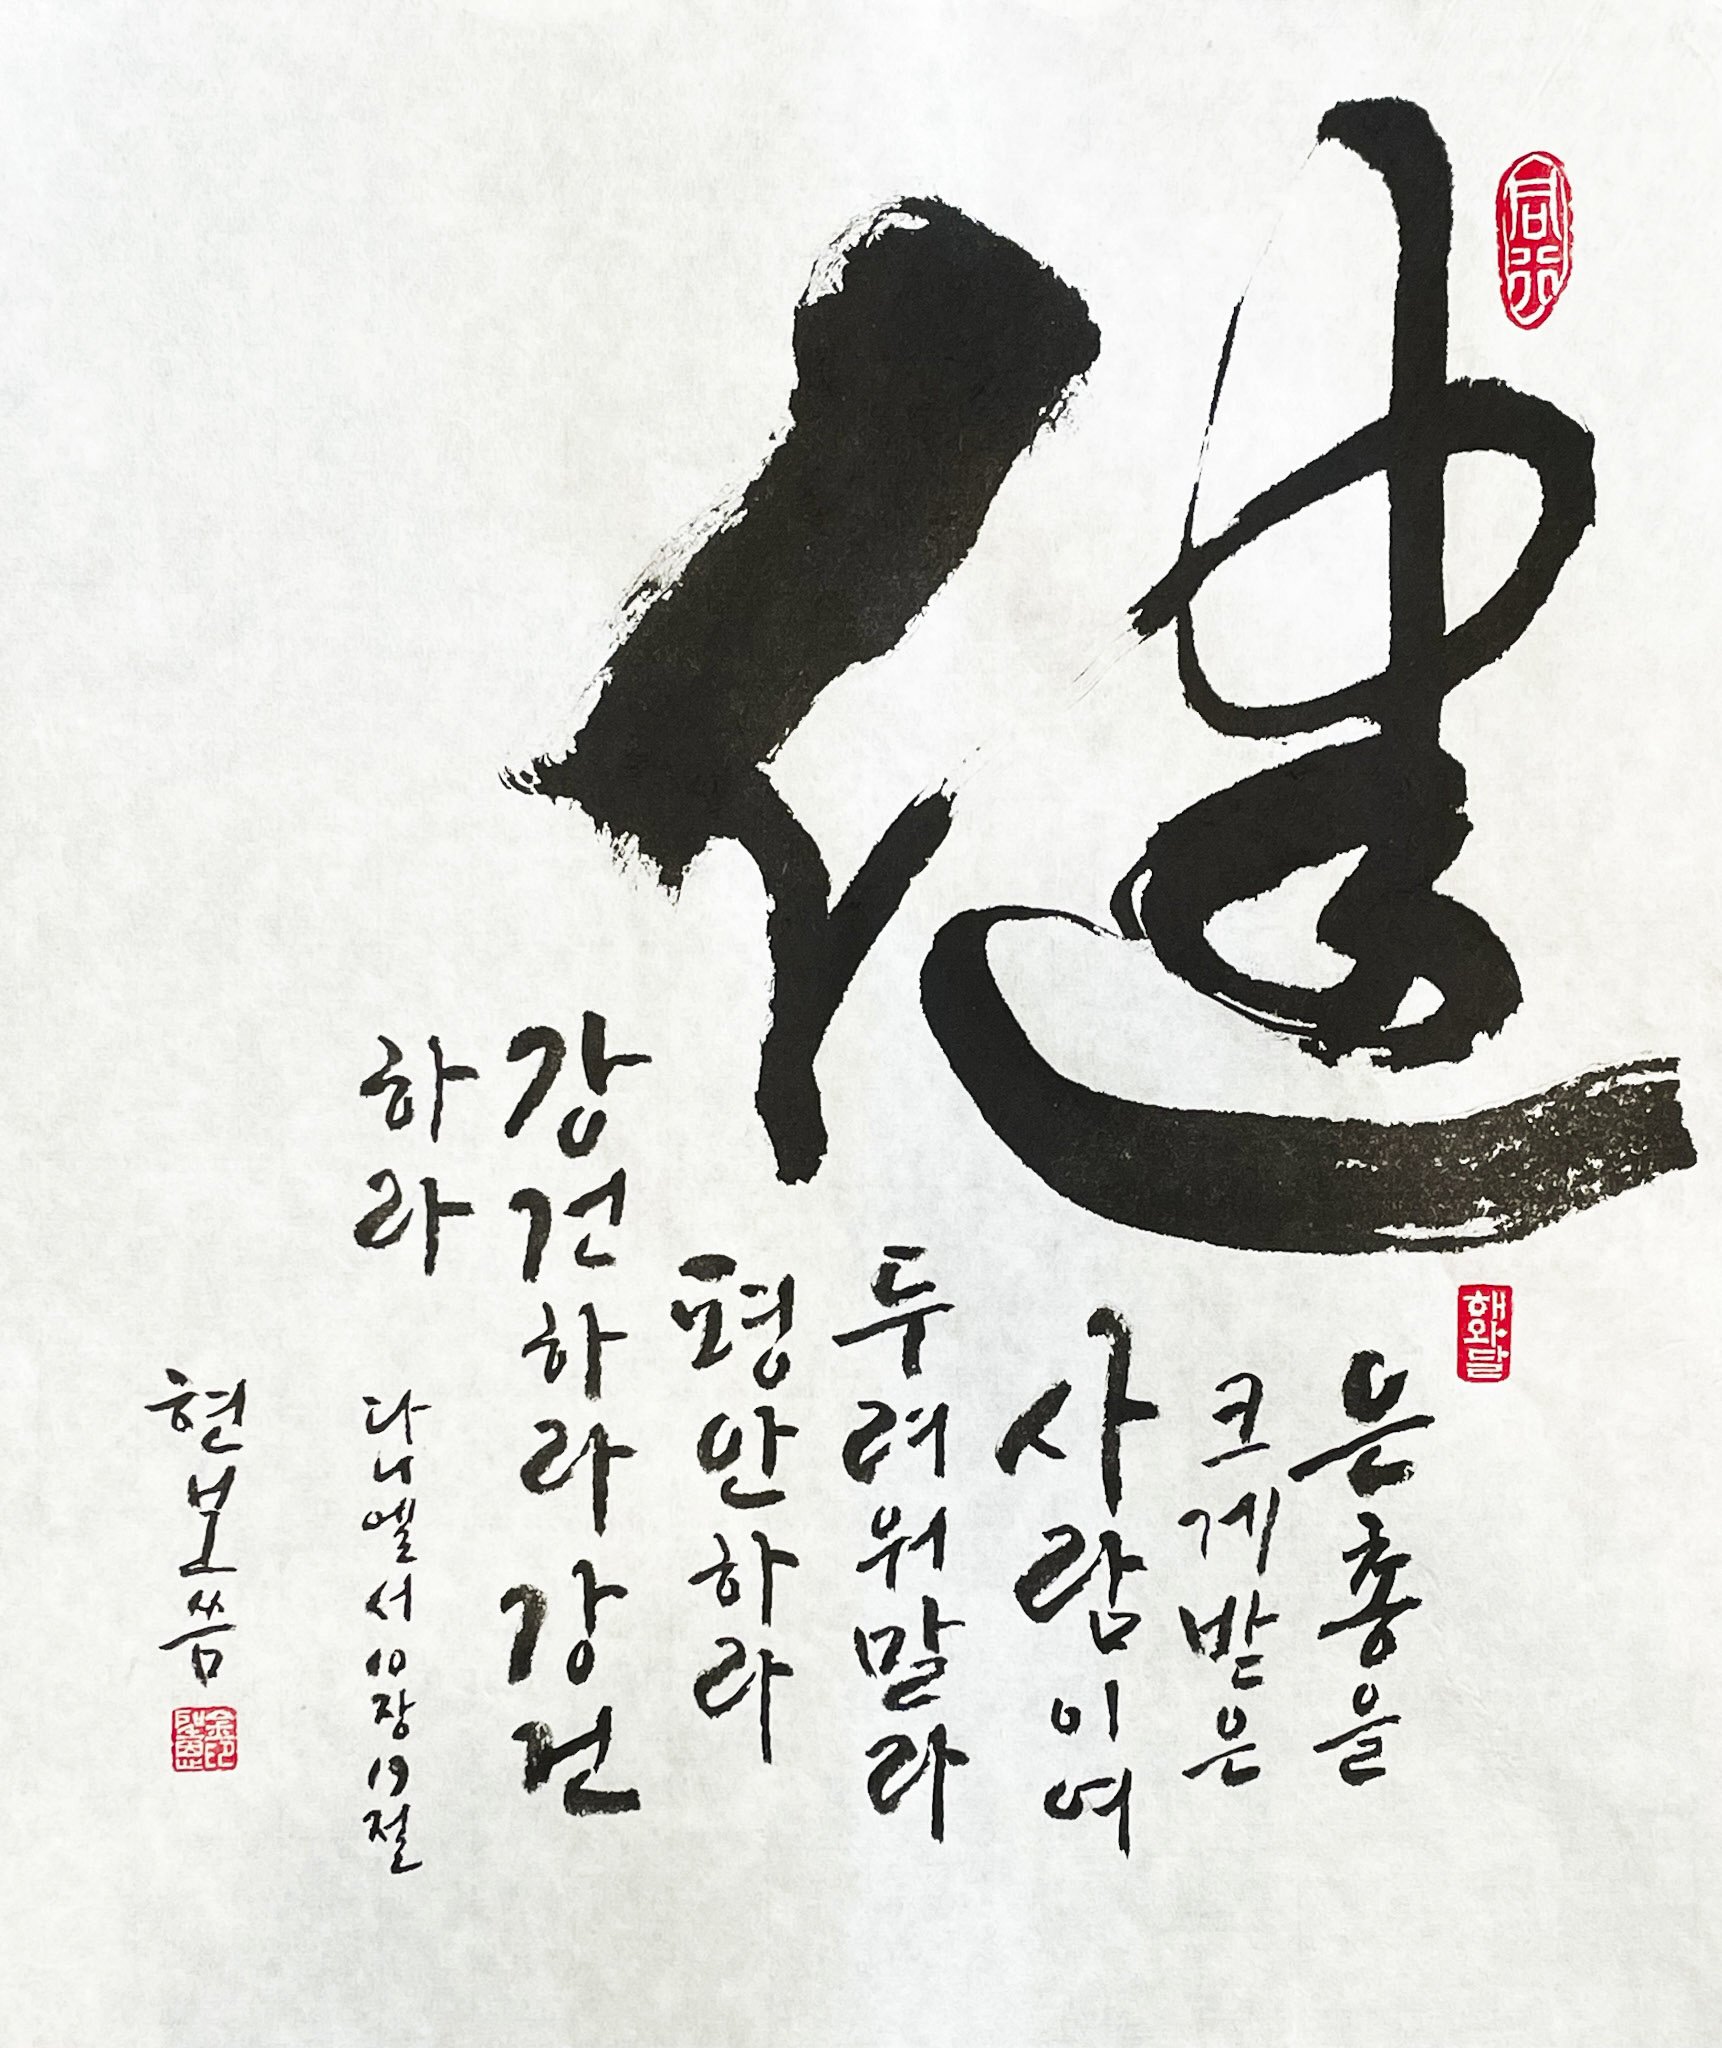 健
同行
해와달
은총을
크게받은
사람이여
두려워말라
평안하라
강건하라강건
하라
다니엘서10장19절
현보씀